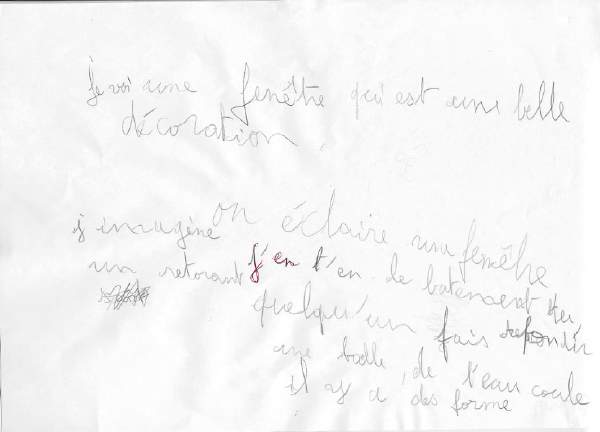 Je voi une fenêtre qui est une belle
décoration.
j'imagène on éclaire une fenêtre
un retorant j'en t'en de
quelqu'un fais
une balle, de l'eau coule
il y a des forme